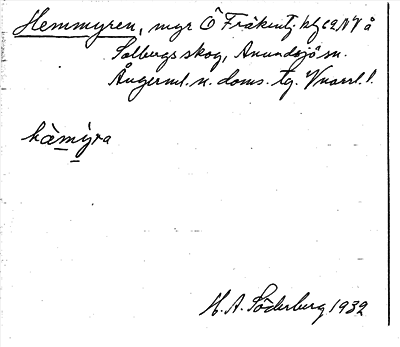 Hemmyren, myr Ö Fräkentj. kbf 62 NV å
Solbergs skog, Anundsjö sn.
Ångerml. n. doms. tg. Vnorrl. l.
hèmỳra
H. A. Söderberg 1932